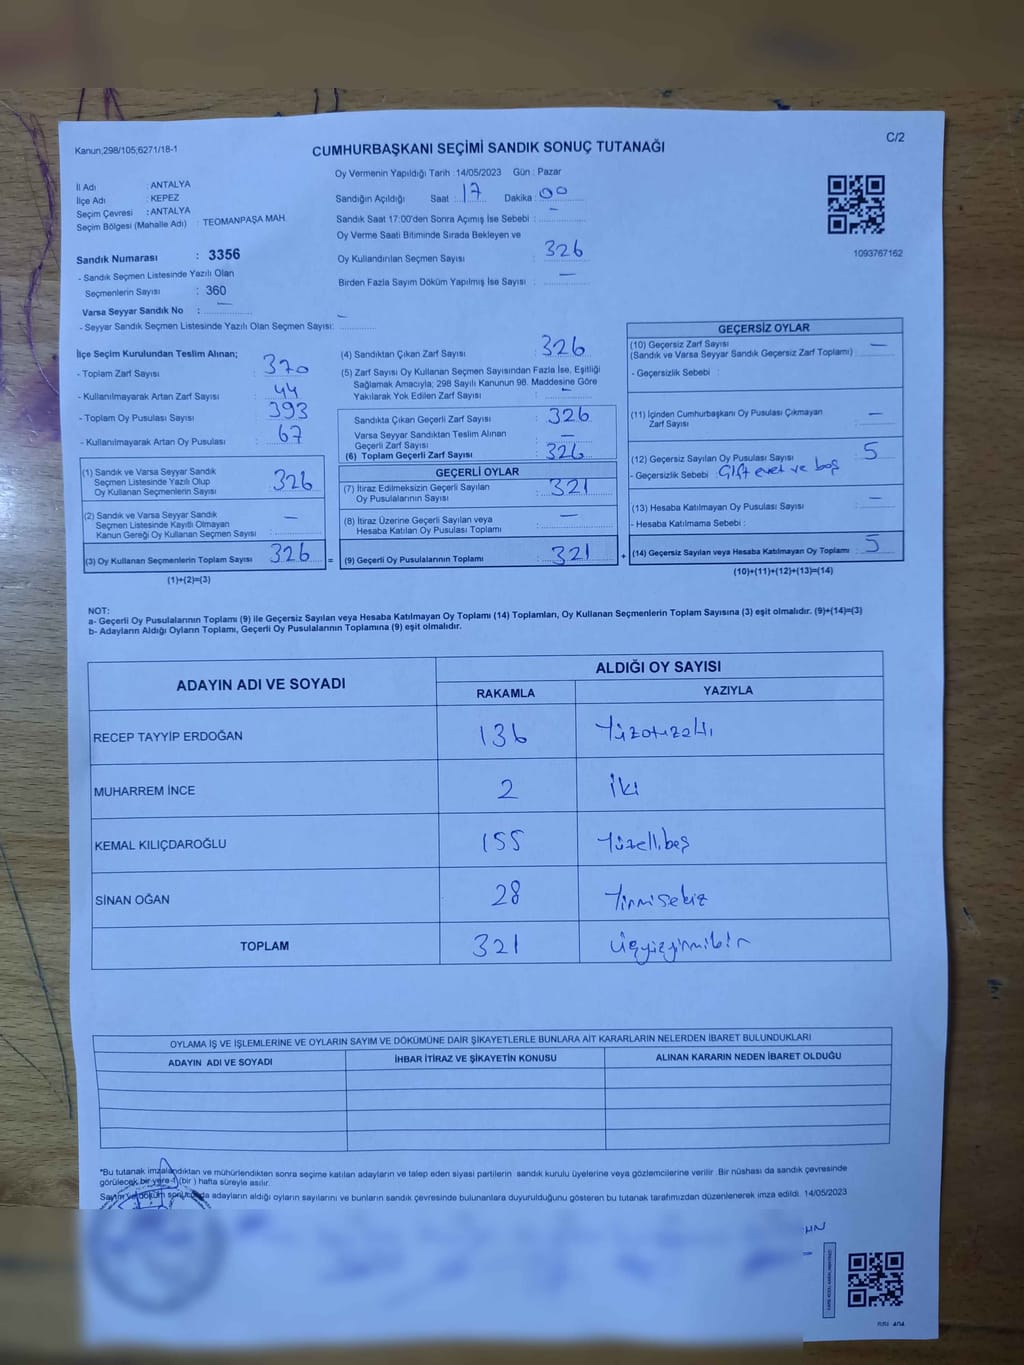 Kanun;298/105;6271/18-1
C/2
CUMHURBAŞKANI SEÇİMİ SANDIK SONUÇ TUTANAĞI
İl Adı : ANTALYA
İlçe Adı : KEPEZ
Seçim Çevresi : ANTALYA
Seçim Bölgesi (Mahalle Adı) : TEOMANPAŞA MAH.
Sandık Numarası : 3356
- Sandık Seçmen Listesinde Yazılı Olan
Seçmenlerin Sayısı : 360
Varsa Seyyar Sandık No : –
- Seyyar Sandık Seçmen Listesinde Yazılı Olan Seçmen Sayısı: –
Oy Vermenin Yapıldığı Tarih : 14/05/2023 Gün : Pazar
Sandığın Açıldığı Saat : 17 Dakika : 00
Sandık Saat 17:00'den Sonra Açımış İse Sebebi : –
Oy Verme Saati Bitiminde Sırada Bekleyen ve
Oy Kullandırılan Seçmen Sayısı : 326
Birden Fazla Sayım Döküm Yapılmış İse Sayısı : –
1093767162
İlçe Seçim Kurulundan Teslim Alınan;
- Toplam Zarf Sayısı : 370
- Kullanılmayarak Artan Zarf Sayısı : 44
- Toplam Oy Pusulası Sayısı : 393
- Kullanılmayarak Artan Oy Pusulası : 67
(1) Sandık ve Varsa Seyyar Sandık
Seçmen Listesinde Yazılı Olup
Oy Kullanan Seçmenlerin Sayısı : 326
(2) Sandık ve Varsa Seyyar Sandık
Seçmen Listesinde Kayıtlı Olmayan
Kanun Gereği Oy Kullanan Seçmen Sayısı : –
(3) Oy Kullanan Seçmenlerin Toplam Sayısı : 326
(1)+(2)=(3)
=
(4) Sandıktan Çıkan Zarf Sayısı : 326
(5) Zarf Sayısı Oy Kullanan Seçmen Sayısından Fazla İse, Eşitliği
Sağlamak Amacıyla; 298 Sayılı Kanunun 98. Maddesine Göre
Yakılarak Yok Edilen Zarf Sayısı : –
Sandıkta Çıkan Geçerli Zarf Sayısı : 326
Varsa Seyyar Sandıktan Teslim Alınan
Geçerli Zarf Sayısı : –
(6) Toplam Geçerli Zarf Sayısı : 326
GEÇERLİ OYLAR
(7) İtiraz Edilmeksizin Geçerli Sayılan
Oy Pusulalarının Sayısı : 321
(8) İtiraz Üzerine Geçerli Sayılan veya
Hesaba Katılan Oy Pusulası Toplamı : –
(9) Geçerli Oy Pusulalarının Toplamı : 321
+
GEÇERSİZ OYLAR
(10) Geçersiz Zarf Sayısı
(Sandık ve Varsa Seyyar Sandık Geçersiz Zarf Toplamı) : –
- Geçersizlik Sebebi :
(11) İçinden Cumhurbaşkanı Oy Pusulası Çıkmayan
Zarf Sayısı : –
(12) Geçersiz Sayılan Oy Pusulası Sayısı : 5
- Geçersizlik Sebebi : Çift evet ve boş
(13) Hesaba Katılmayan Oy Pusulası Sayısı : –
- Hesaba Katılmama Sebebi :
(14) Geçersiz Sayılan veya Hesaba Katılmayan Oy Toplamı : 5
(10)+(11)+(12)+(13)=(14)
NOT:
a- Geçerli Oy Pusulalarının Toplamı (9) ile Geçersiz Sayılan veya Hesaba Katılmayan Oy Toplamı (14) Toplamları, Oy Kullanan Seçmenlerin Toplam Sayısına (3) eşit olmalıdır. (9)+(14)=(3)
b- Adayların Aldığı Oyların Toplamı, Geçerli Oy Pusulalarının Toplamına (9) eşit olmalıdır.
ADAYIN ADI VE SOYADI
ALDIĞI OY SAYISI
RAKAMLA YAZIYLA
RECEP TAYYİP ERDOĞAN 136 Yüzotuzaltı
MUHARREM İNCE 2 İki
KEMAL KILIÇDAROĞLU 155 Yüzellibeş
SİNAN OĞAN 28 Yirmisekiz
TOPLAM 321 Üçyüzyirmibir
OYLAMA İŞ VE İŞLEMLERİNE VE OYLARIN SAYIM VE DÖKÜMÜNE DAİR ŞİKAYETLERLE BUNLARA AİT KARARLARIN NELERDEN İBARET BULUNDUKLARI
ADAYIN ADI VE SOYADI İHBAR İTİRAZ VE ŞİKAYETİN KONUSU ALINAN KARARIN NEDEN İBARET OLDUĞU
*Bu tutanak imzalandıktan ve mühürlendikten sonra seçime katılan adayların ve talep eden siyasi partilerin sandık kurulu üyelerine veya gözlemcilerine verilir. Bir nüshası da sandık çevresinde
görülecek bir yere 1 (bir) hafta süreyle asılır.
Sayım ve döküm sonucunda adayların aldığı oyların sayılarını ve bunların sandık çevresinde bulunanlara duyurulduğunu gösteren bu tutanak tarafımızdan düzenlenerek imza edildi. 14/05/2023